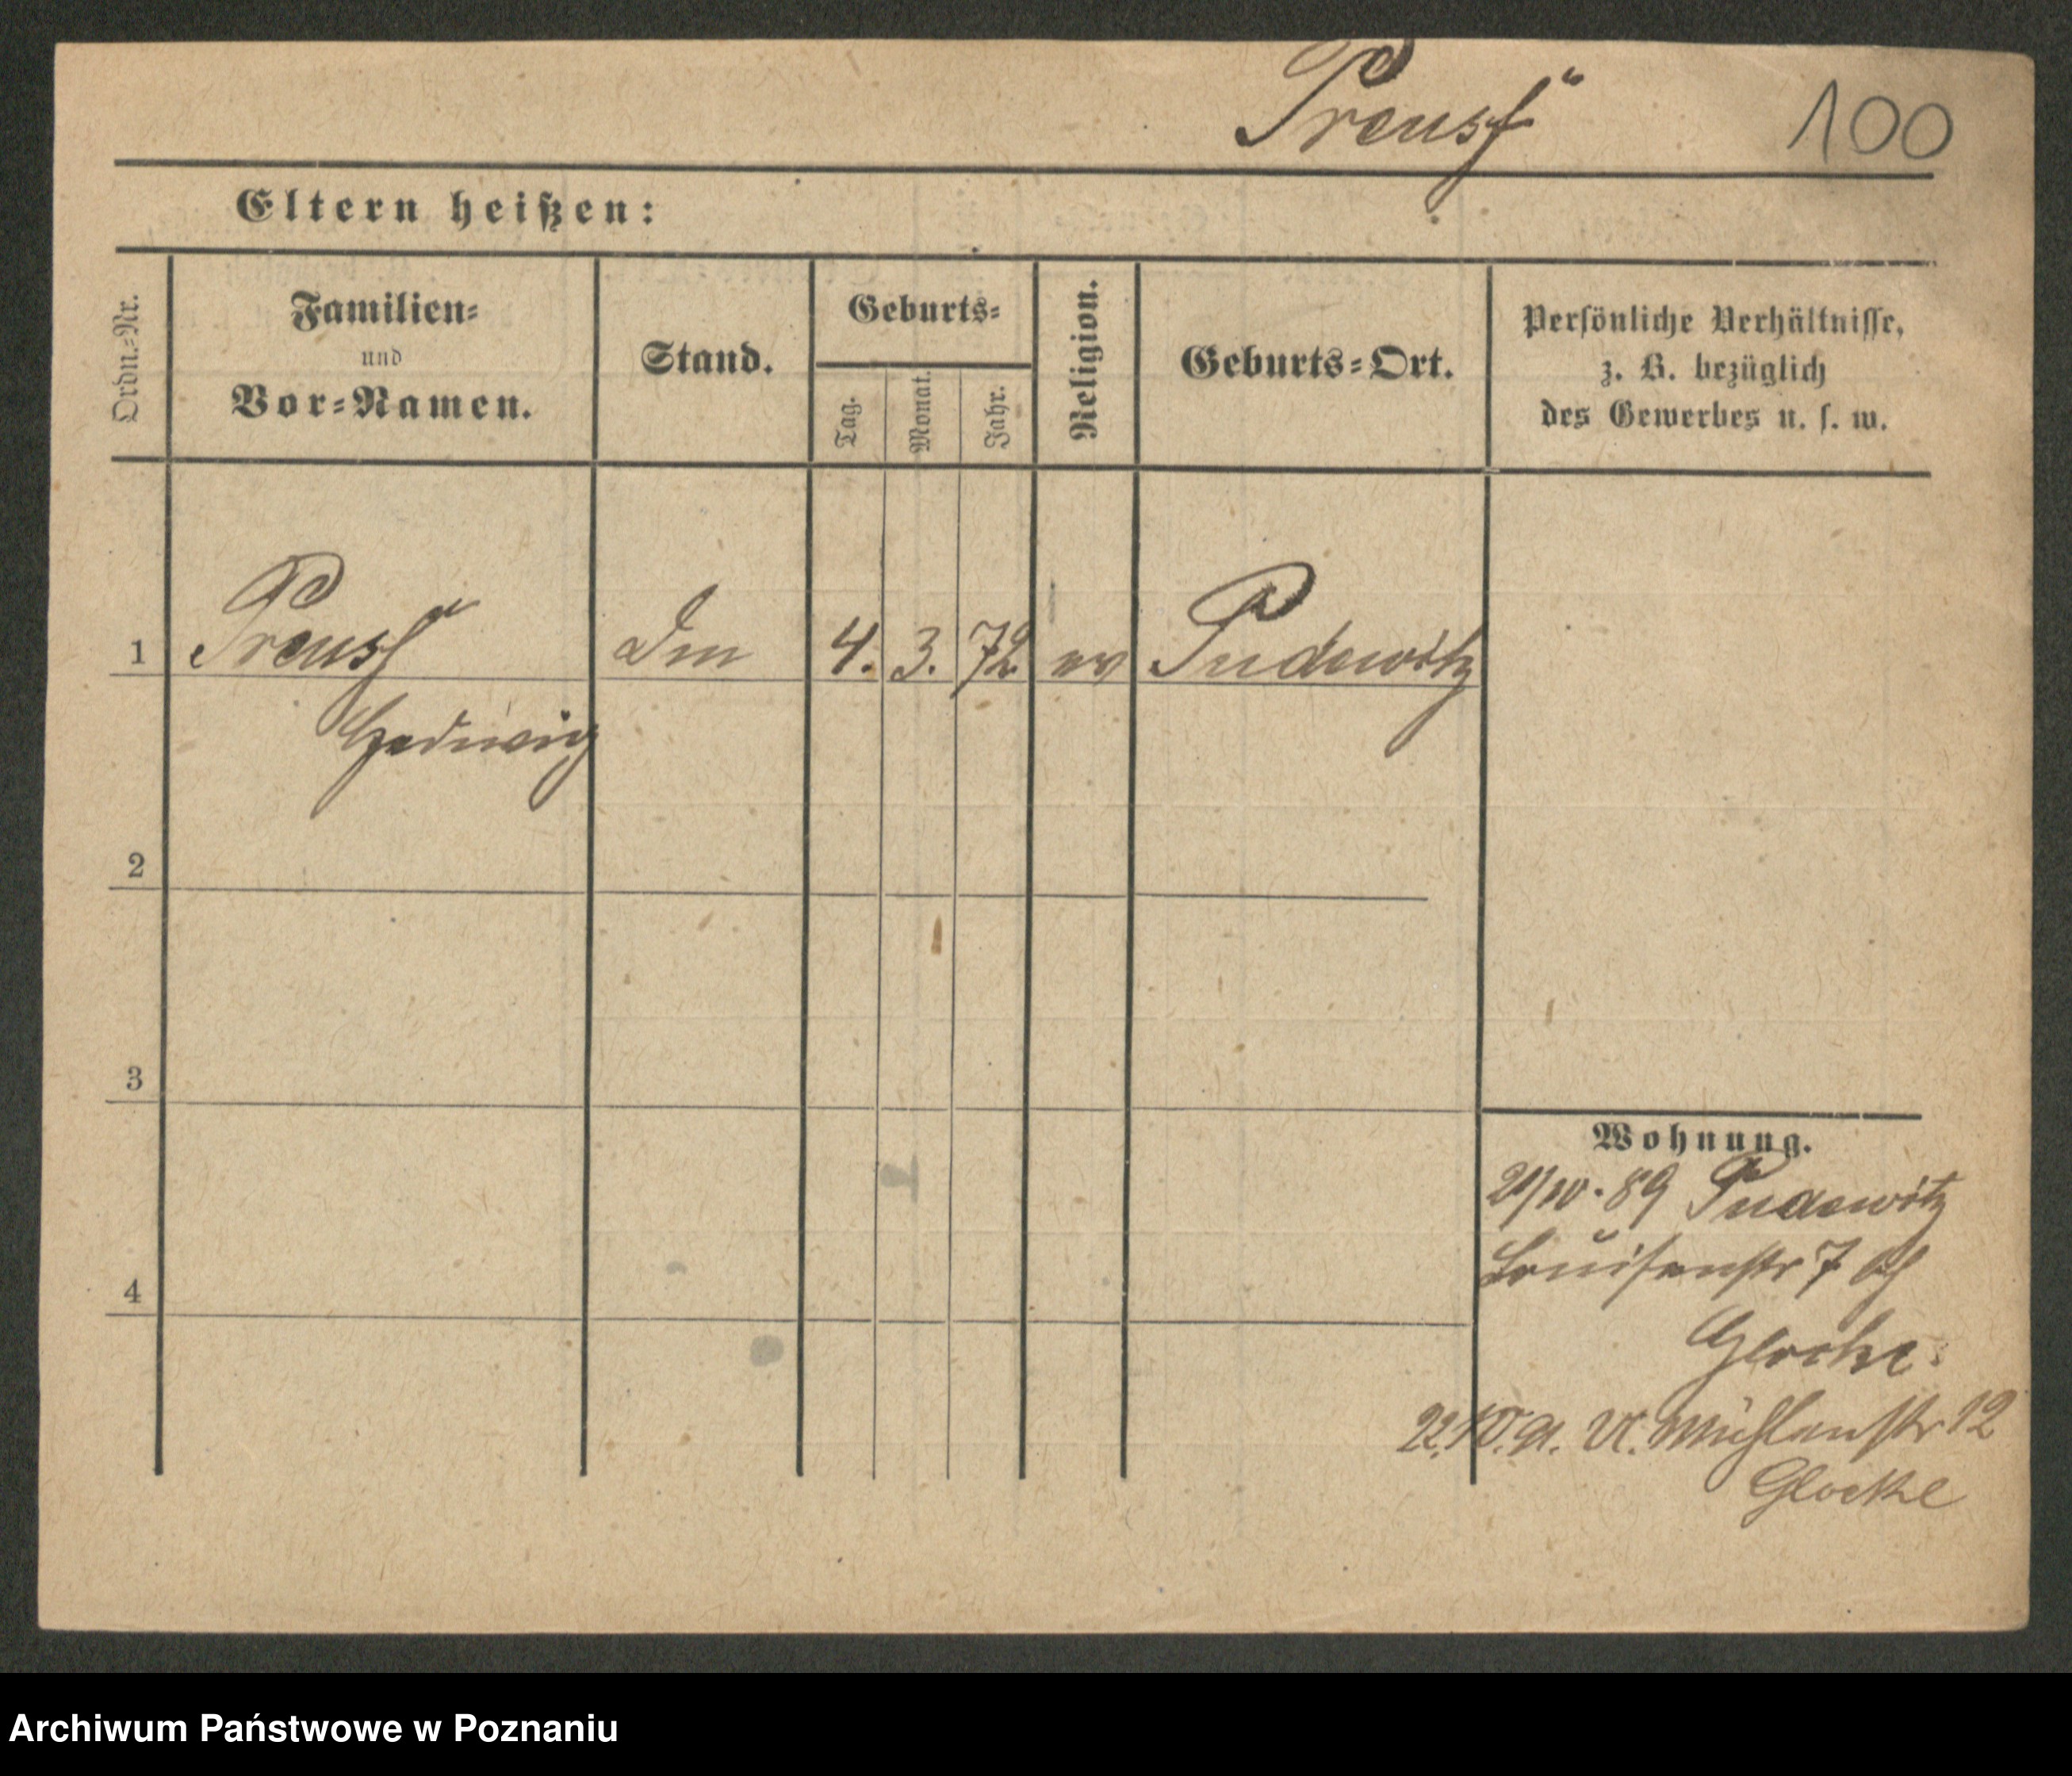 Preuß
100
Eltern heißen:
Ordn.-Nr.
Familien-
und
Vor-Namen.
Stand.
Geburts-
Tag.
Monat.
Jahr.
Religion.
Geburts-Ort.
Persönliche Verhältnisse,
z. B. bezüglich
des Gewerbes u. s. w.
1 Preuß 4. 3. 72 ev Pudewitz
Hedwig
2
3
4
Wohnung.
21/10. 89 Pudewitz
Louisenstr 7 bei
Glocke
22. 10. 91. Mühlenstr 12
Glocke
Archiwum Państwowe w Poznaniu